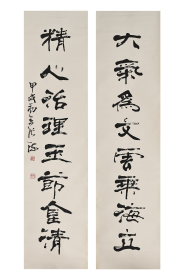 大氣爲文雲垂海立
精心治理玉節金清
甲戌初冬